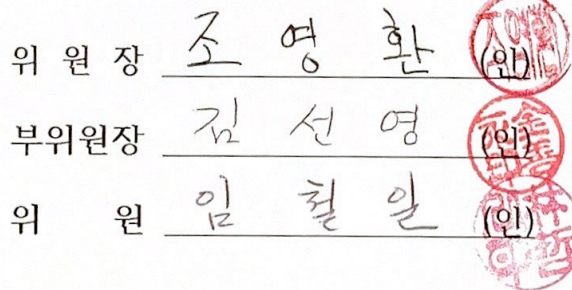 위 원 장 조 영 환 (인)
부위원장 김 선 영 (인)
위 원 임 철 일 (인)